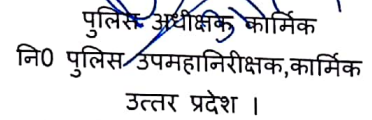 पुलिस अधीक्षक, कार्मिक
नि0 पुलिस उपमहानिरीक्षक,कार्मिक
उत्तर प्रदेश ।